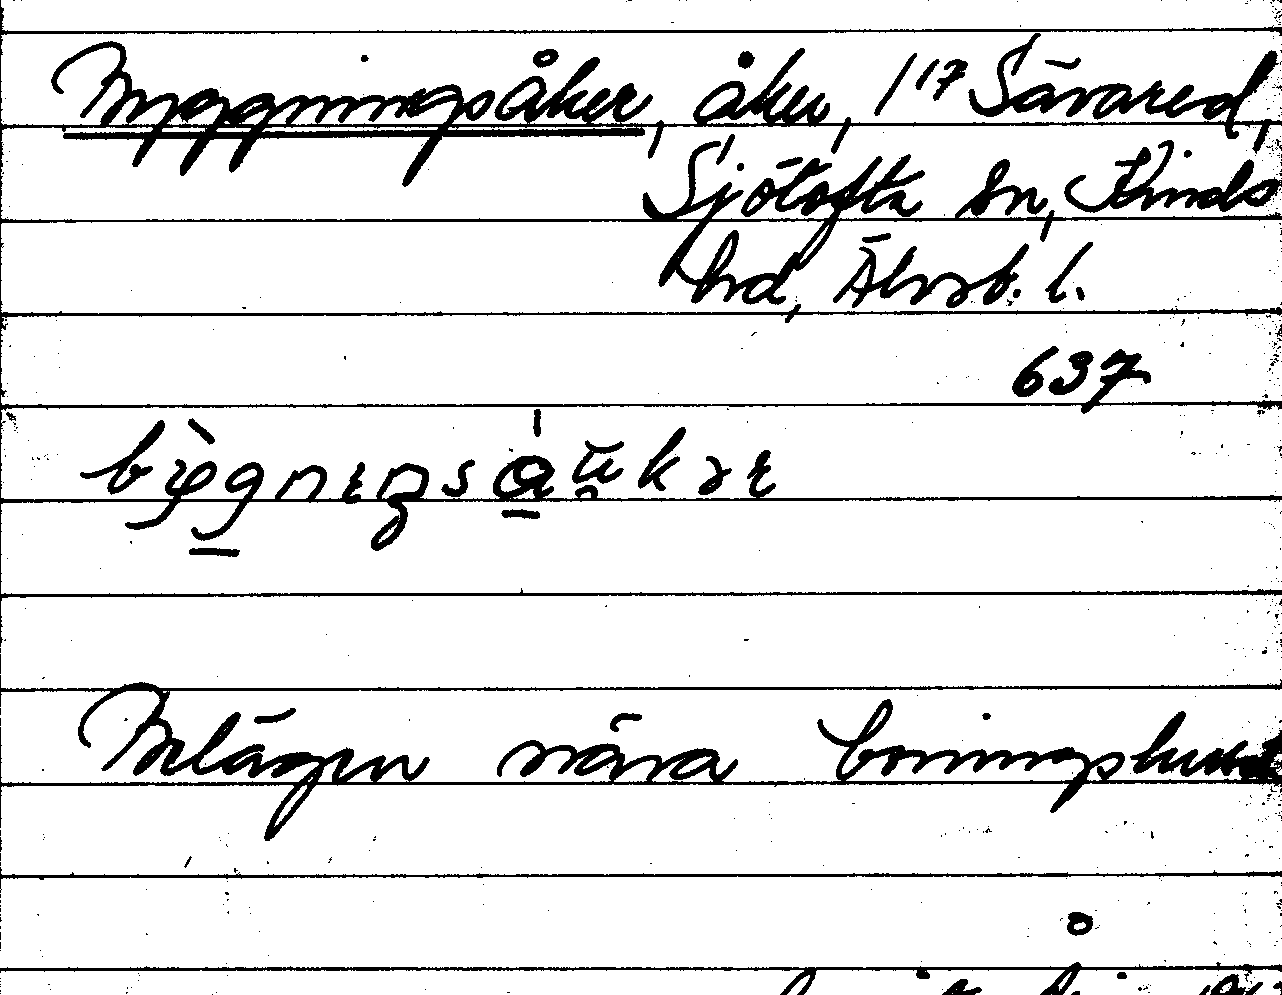 Byggningsåker, åker, 1/17 Sävared,
Sjötofta sn, Kinds
hd, Älvsb. l.
637
Belägen nära boningshuset